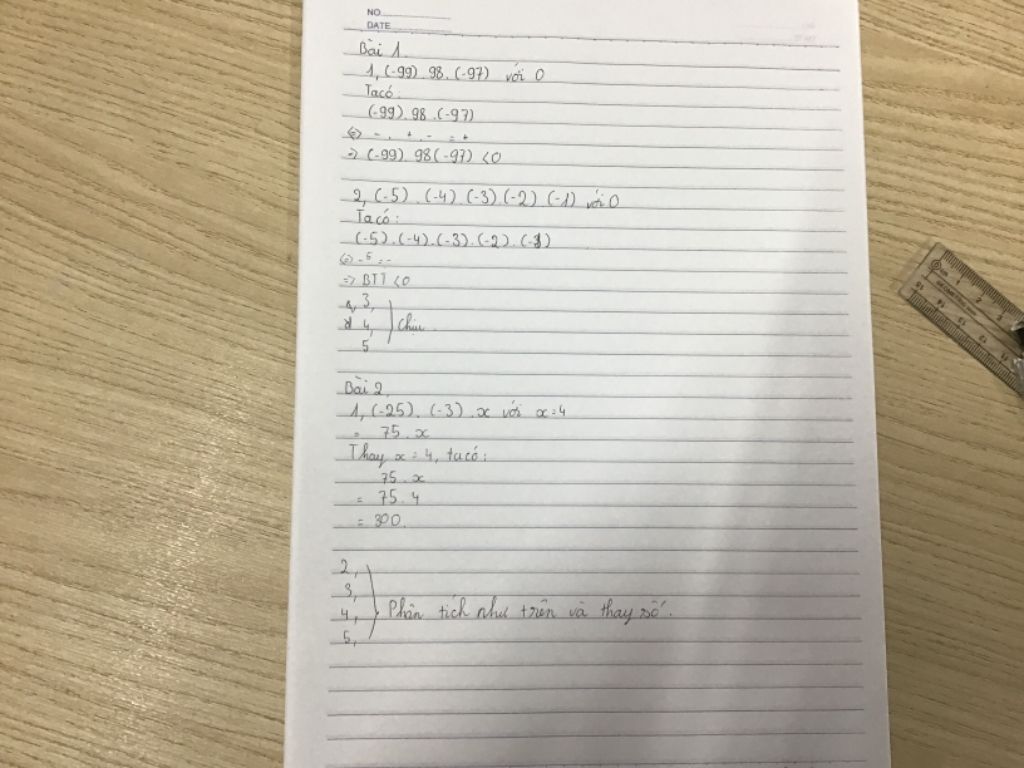 NO
DATE
Bài 1.
1, (-99) 98. (-97) với 0
Ta có:
(-99) 98 . (-97)
⇔ - . + . - = +
⇒ (-99) 98 (-97) < 0
2, (-5) . (-4) (-3) (-2) (-1) với 0
Ta có:
(-5) . (-4) . (-3) . (-2) . (-1)
⇔ -5 = -
⇒ BTT < 0
3,
4, Chịu
5
Bài 2,
1, (-25) . (-3) . x với x = 4
= 75 . x
Thay x = 4, ta có:
75 . x
= 75 . 4
= 300.
2,
3,
4, Phân tích như trên và thay số.
5,